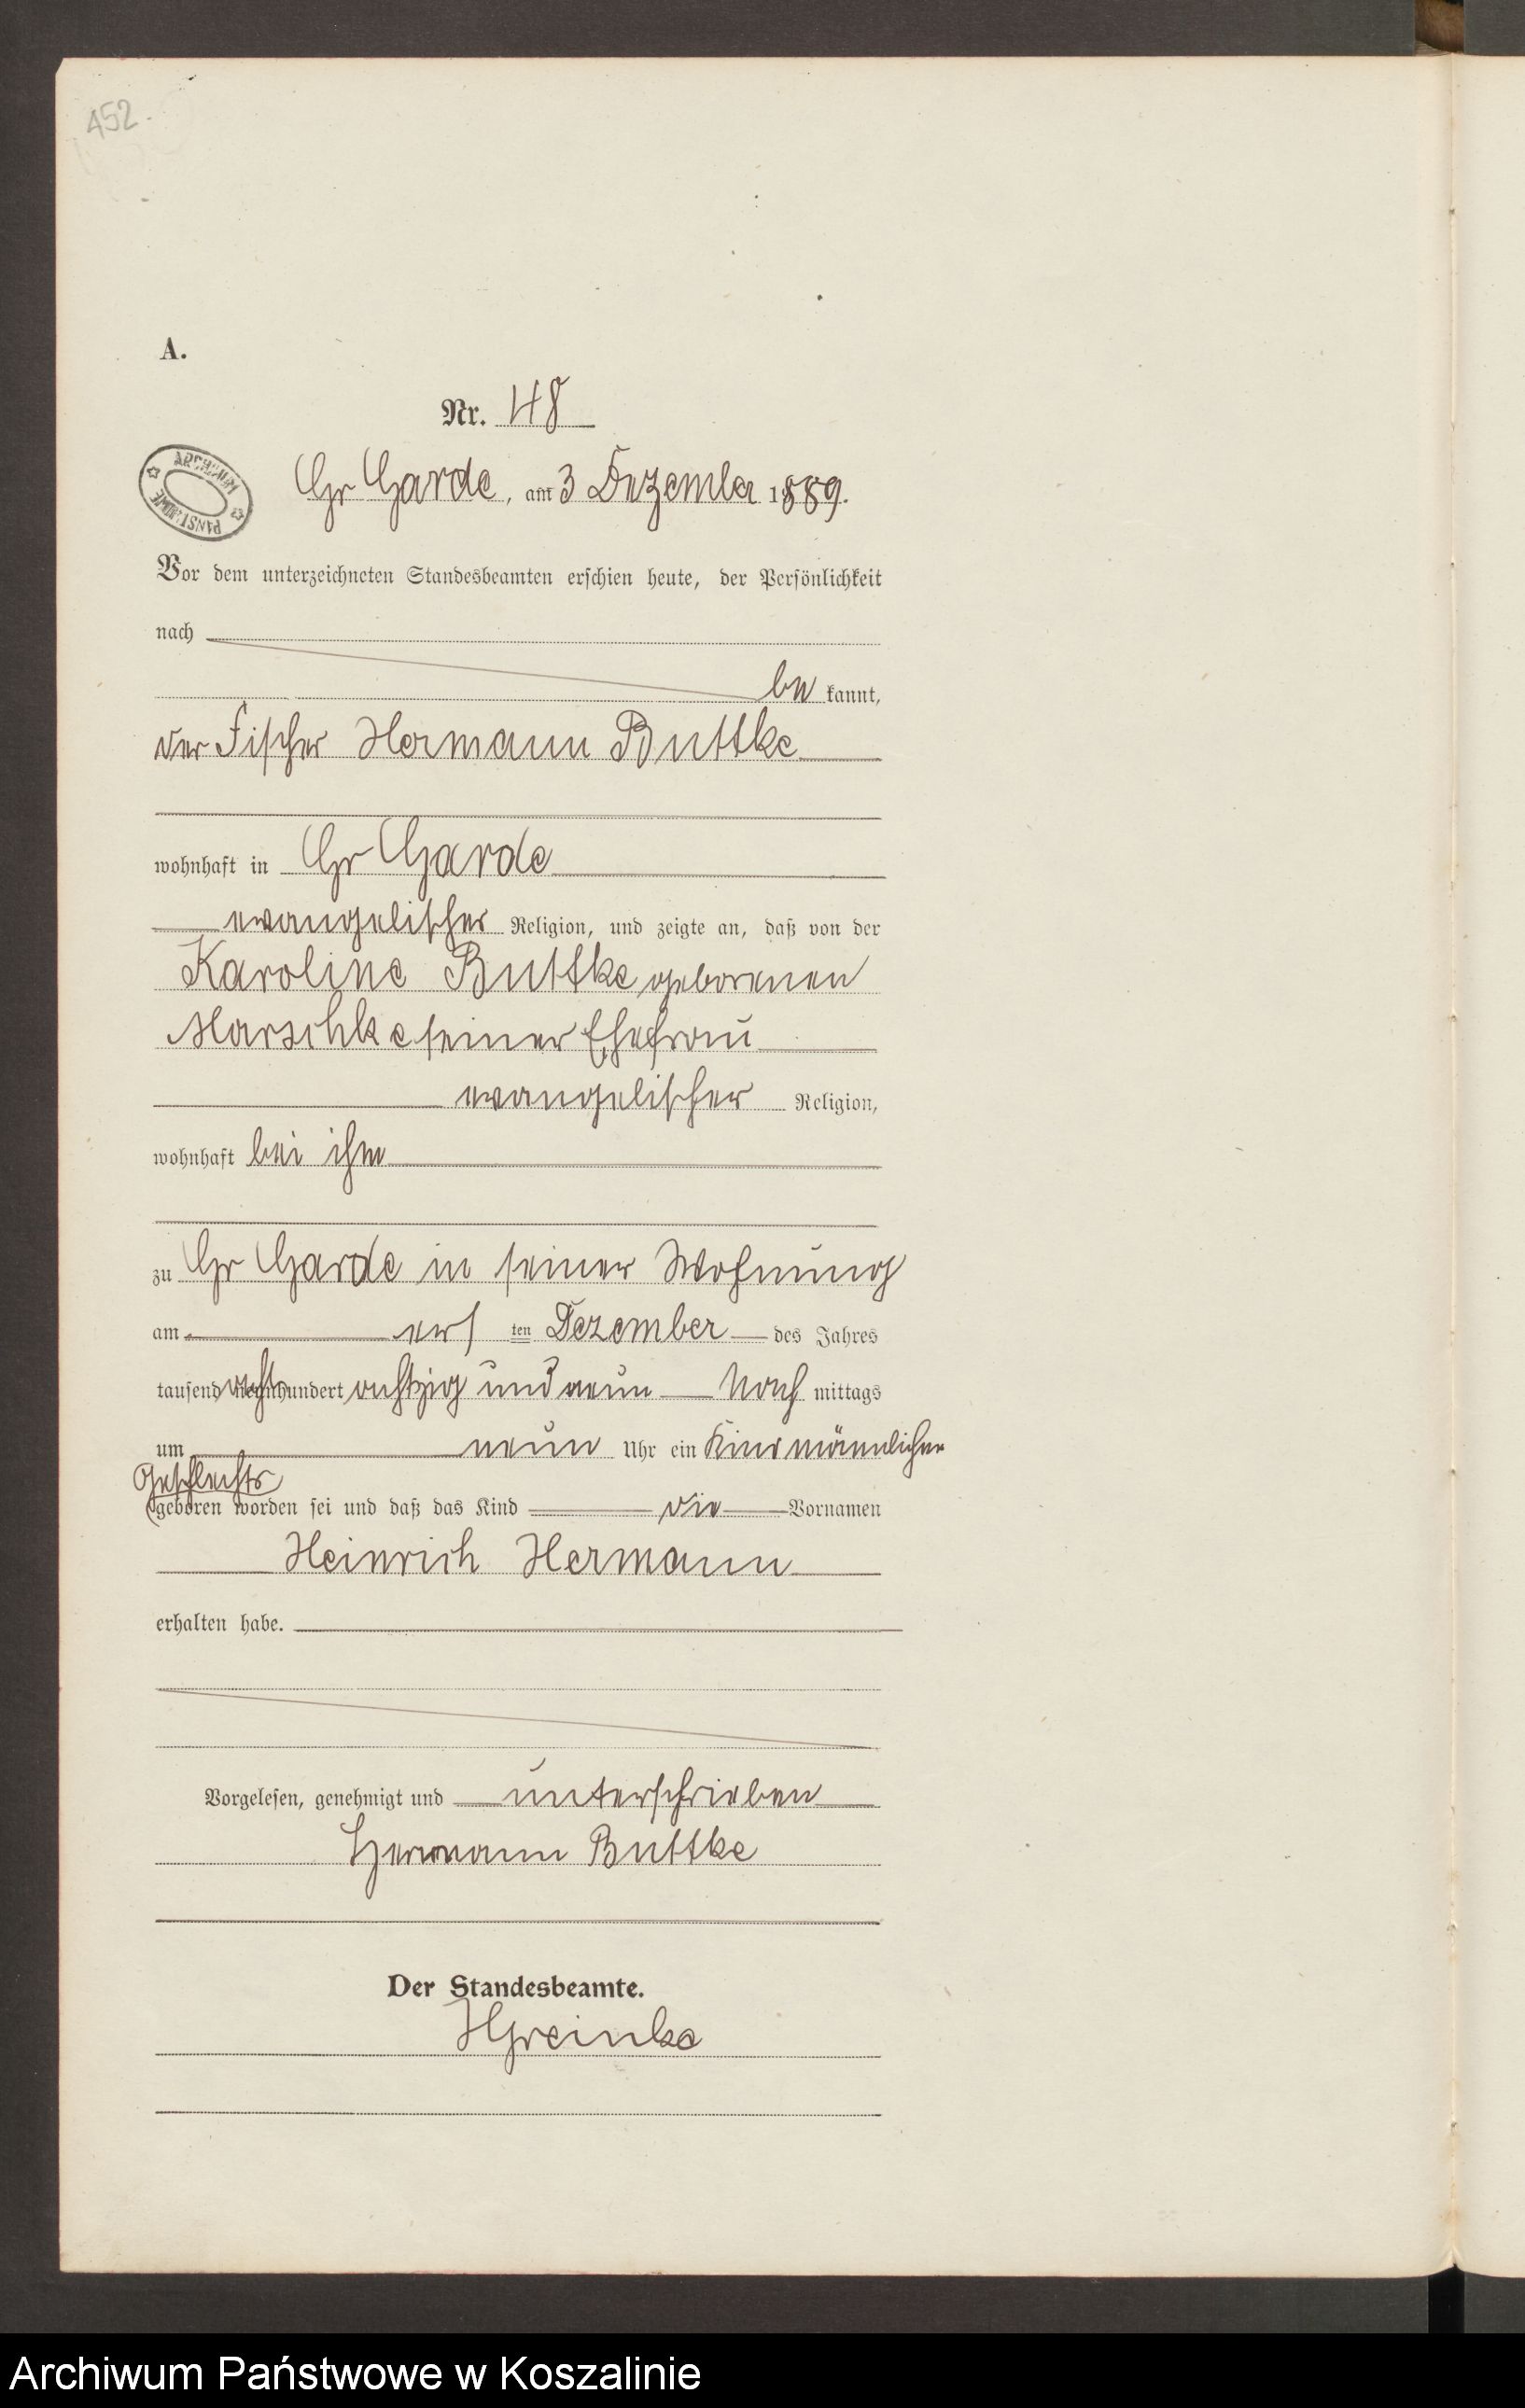 452.
A.
Nr. 48
ARCHIWUM PAŃSTWOWE
Gr Garde, am 3 Dezember 1889.
Vor dem unterzeichneten Standesbeamten erschien heute, der Persönlichkeit
nach
be kannt,
der Fischer Hermann Buttke
wohnhaft in Gr Garde
evangelischer Religion, und zeigte an, daß von der
Karoline Buttke geborenen
Marschke seiner Ehefrau
evangelischer Religion,
wohnhaft bei ihm
zu Gr Garde in seiner Wohnung
am ers ten Dezember des Jahres
tausend acht hundert achtzig und neun Nach mittags
um neun Uhr ein Kind männlichen
Geschlechts
geboren worden sei und daß das Kind die Vornamen
Heinrich Hermann
erhalten habe.
Vorgelesen, genehmigt und unterschrieben
Hermann Buttke
Der Standesbeamte.
HGreinke
Archiwum Państwowe w Koszalinie